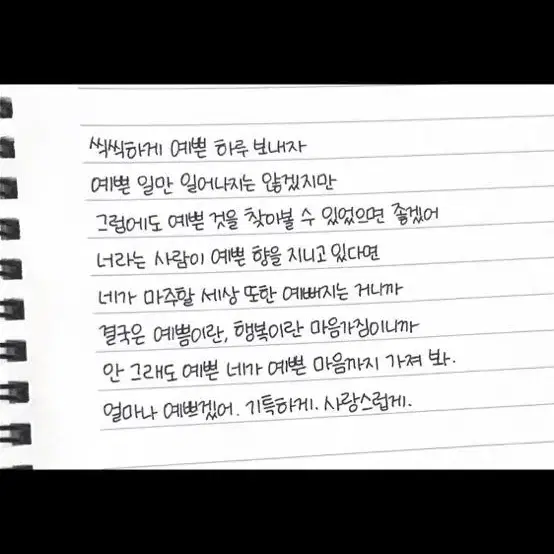 씩씩하게 예쁜 하루 보내자
예쁜 일만 일어나지는 않겠지만
그럼에도 예쁜 것을 찾아볼 수 있었으면 좋겠어
너라는 사람이 예쁜 향을 지니고 있다면
네가 마주할 세상 또한 예뻐지는 거니까
결국은 예쁨이란, 행복이란 마음가짐이니까
안 그래도 예쁜 네가 예쁜 마음까지 가져 봐.
얼마나 예쁘겠어. 기특하게. 사랑스럽게.